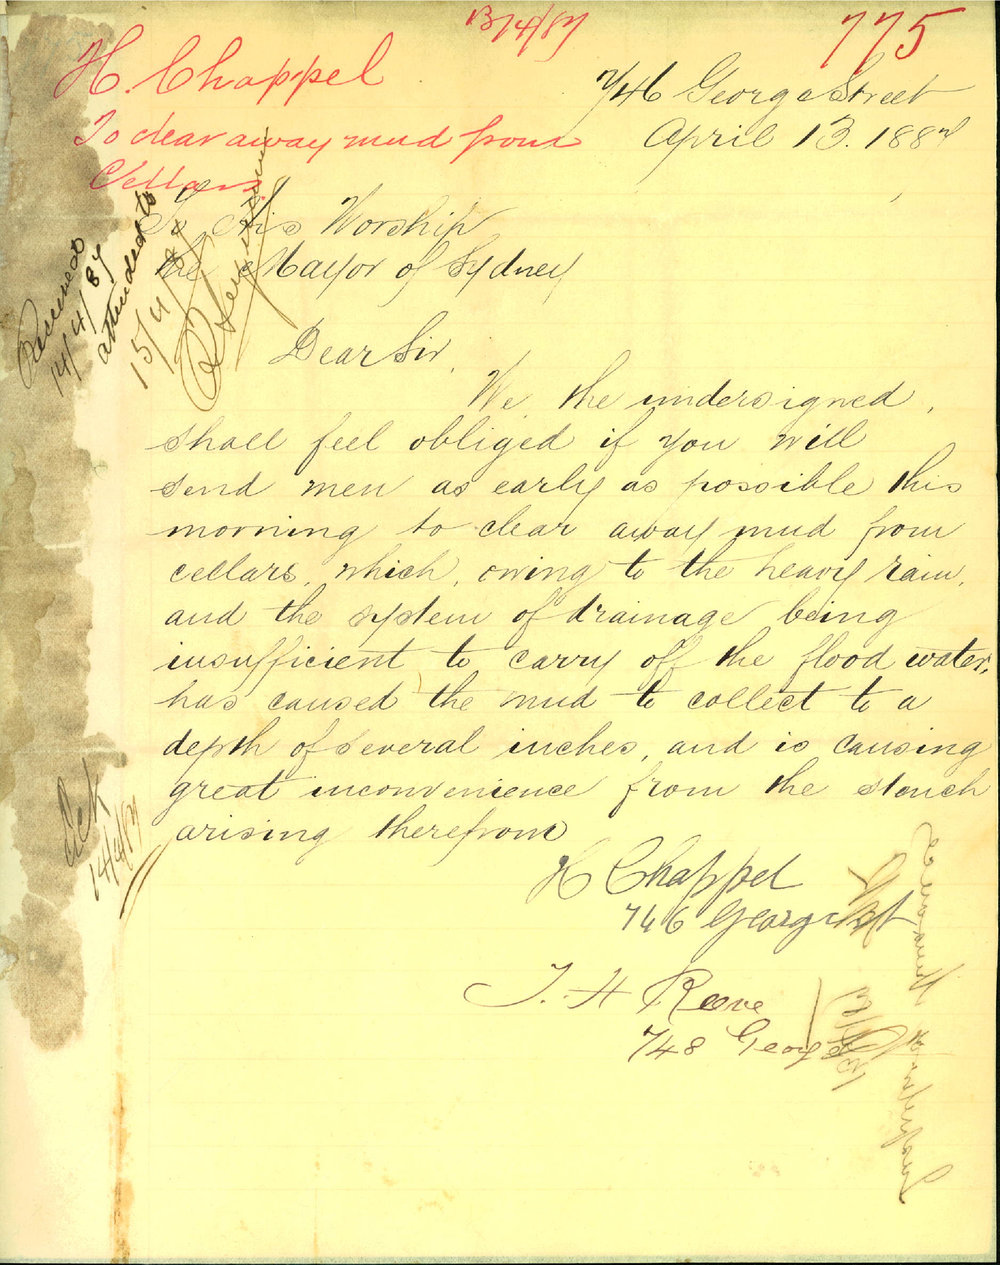 13/4/87
775
H. Chappel
To clear away mud from
Cellars.
746 George Street
April 13. 1887
To His Worship
the Mayor of Sydney
Received
14/4/87
attended to
15/4/87
Dear Sir,
We, the undersigned,
shall feel obliged if you will
send men as early as possible this
morning to clear away mud from
cellars, which, owing to the heavy rain,
and the system of drainage being
insufficient to carry off the flood water,
has caused the mud to collect to a
depth of several inches, and is causing
great inconvenience from the stench
arising therefrom
Ack
14/4/87
H Chappel
746 George St
T. H Reeve
748 George